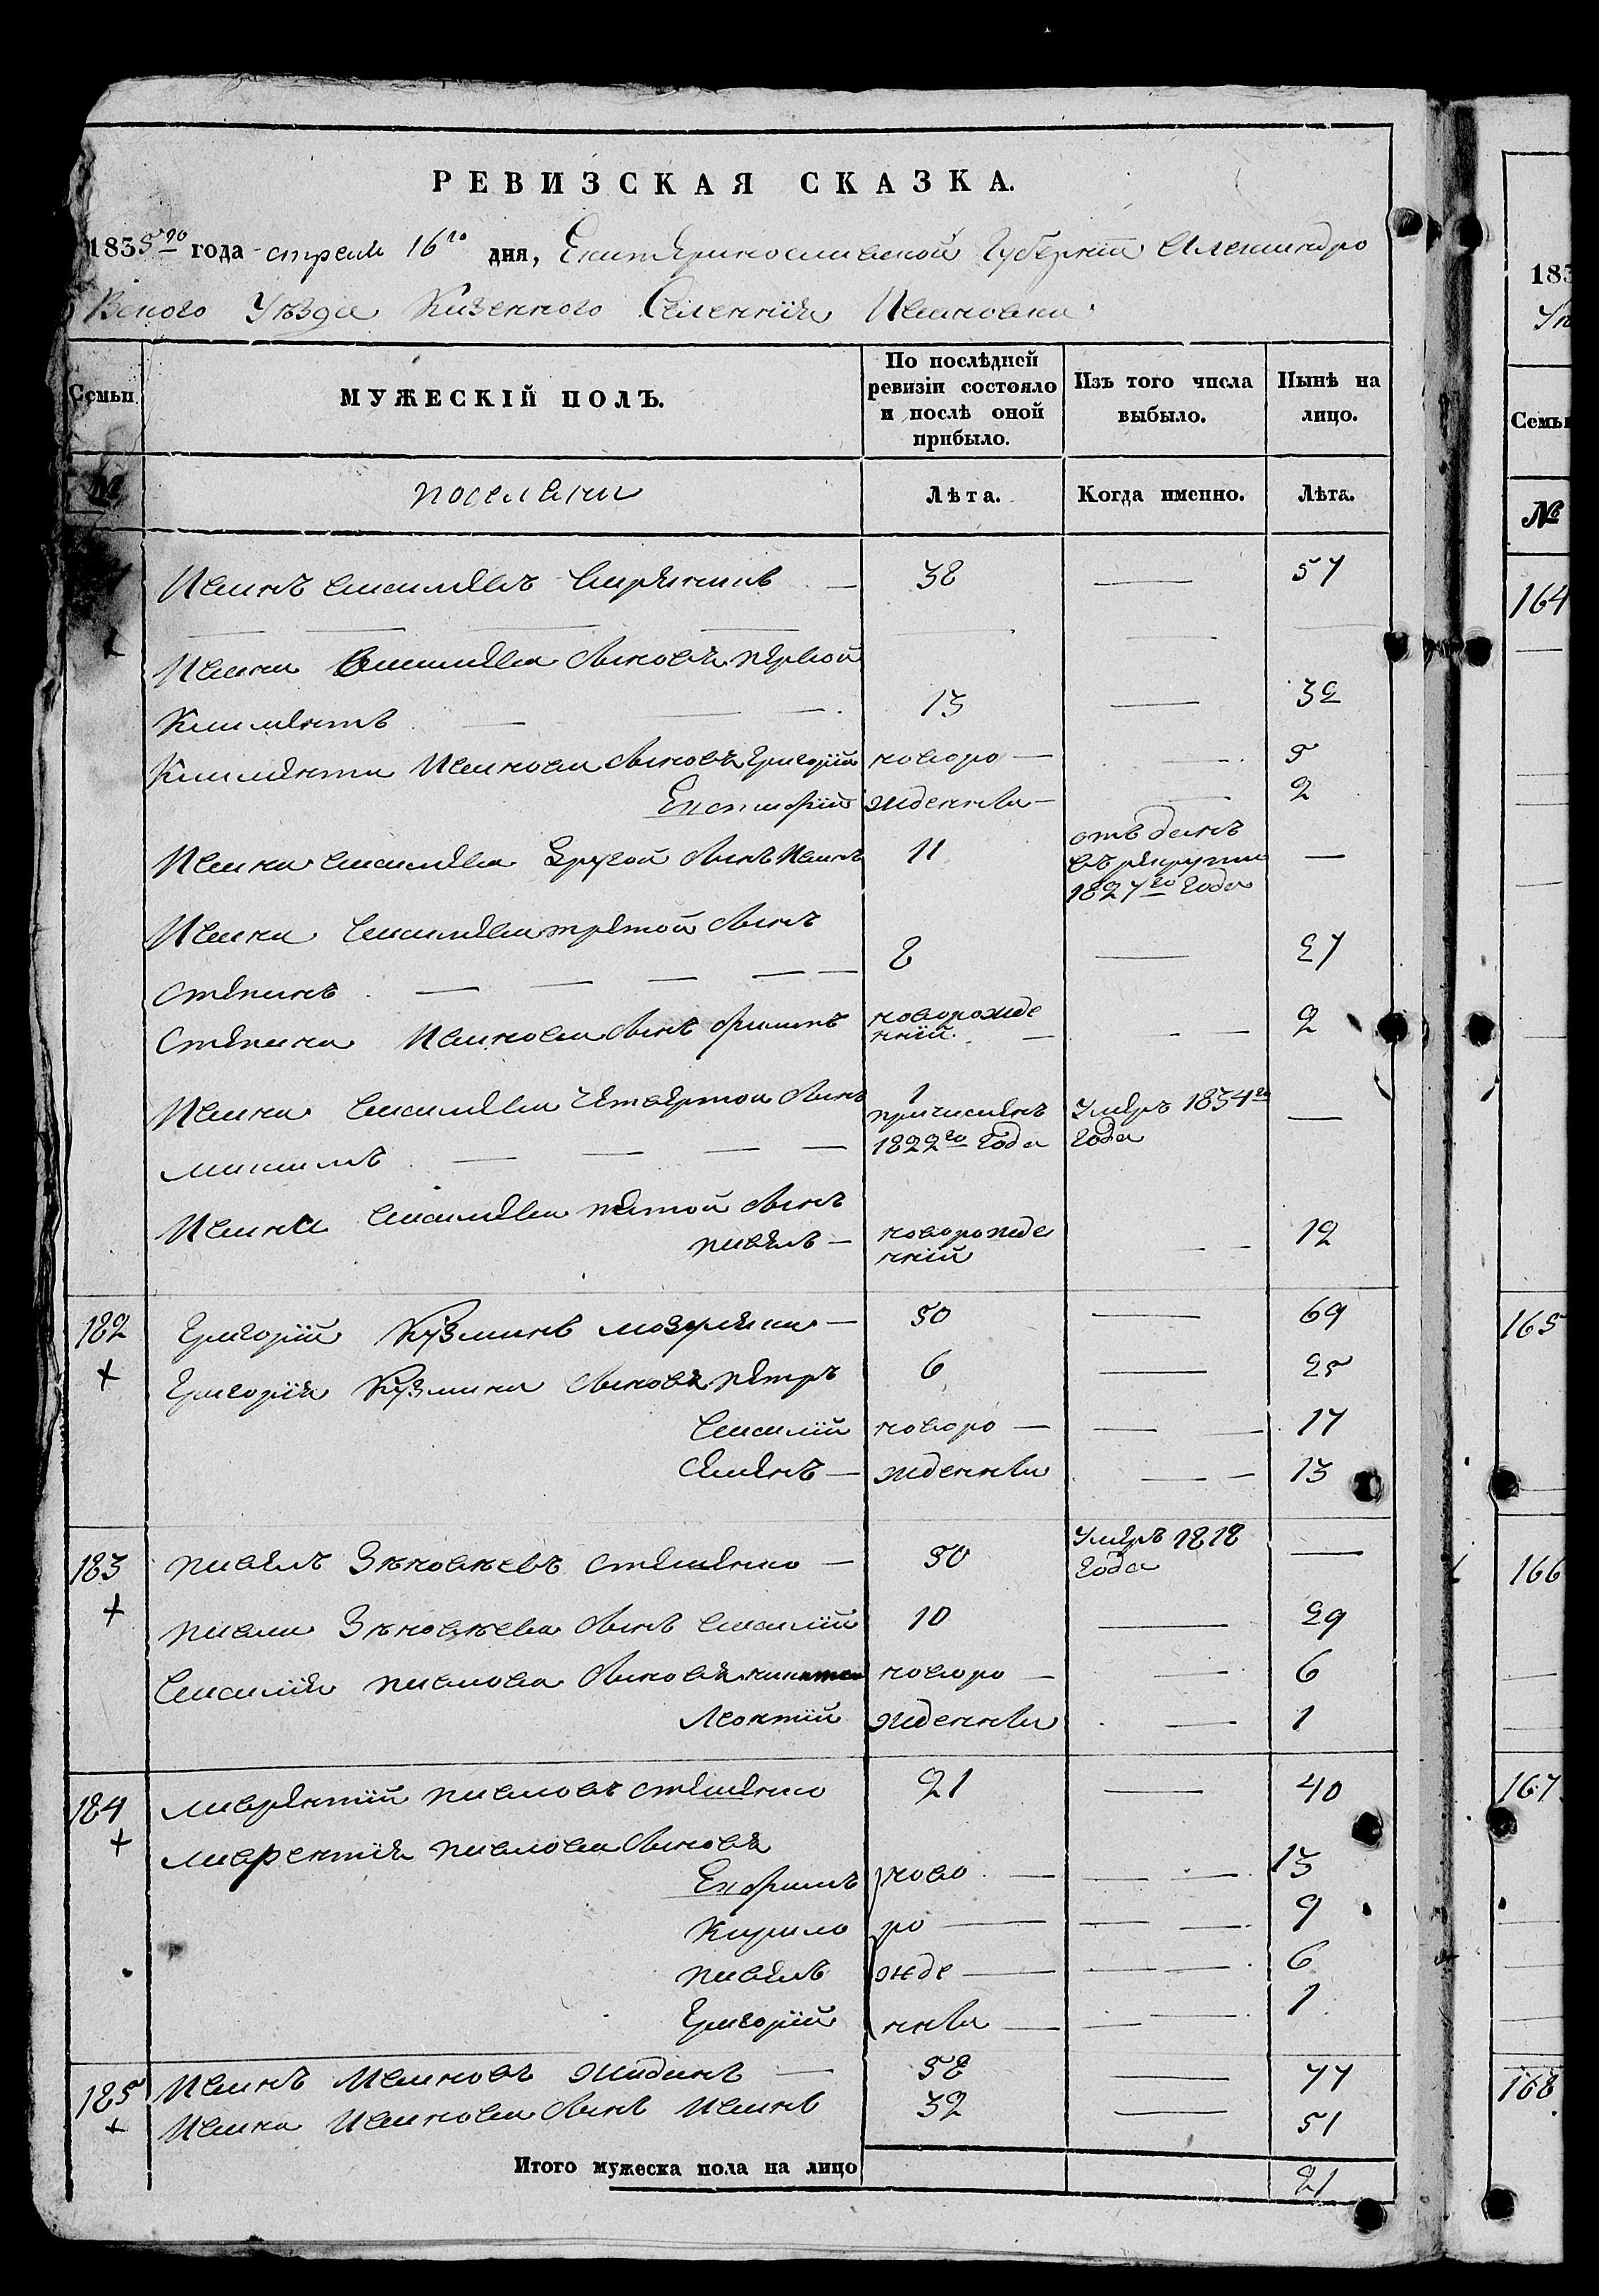 РЕВИЗСКАЯ СКАЗКА.
1835го года апреля 16го дня, Екатеринославской Губернии Александро
Вского Уезда Казенного Селения Ивановки
Семьи
МУЖЕСКІЙ ПОЛЪ.
По послѣдней ревизіи состояло и послѣ оной прибыло.
Изъ того числа выбыло.
Нынѣ на лицо.
№
поселяни
Лѣта.
Когда именно.
Лѣта.
Иванъ Василіевъ 38 — 57
Ивана Василіева Сыновя первой
Климентъ — 13 — 32
Климентія Иванова Сыновя Григорій новоро — 5
Евстафій жденныи — 2
Ивана Василіева Другой Сынъ Иванъ 11 отъданъ въ рекруты 1827го Года —
Ивана Василіева третой Сынъ
Степанъ — 8 — 27
Степана Иванова Сынъ новорожде нній — 2
Ивана Василіева Четвертой Сынъ 1 причисленъ 1822го Года Умеръ 1834го Года —
Ивана Василіева пятой Сынъ
павелъ — новорожде нній — 12
182 Григорій Кузминъ — 50 — 69
+ Григорія Кузмина Сыновя петръ 6 — 25
Василій новоро — 17
Семенъ — жденныи — 13
183 павелъ Зѣновѣевъ — 50 Умеръ 1818 Года —
+ павла Зѣновѣева Сынъ Василій 10 — 29
Василія павлова Сыновя никита новоро — 6
Леонтій жденныи — 1
184 лаврентій павловъ 21 — 40
+ лаврентія павлова Сыновя
Ефримъ ново — 13
Кирило ро — 9
павелъ жде — 6
Григорій нныи — 1
185 Иванъ Ивановъ жаданъ — 58 — 77
+ Ивана Иванова Сынъ Иванъ 32 — 51
Итого мужеска пола на лицо 21
183
Семьи
№
164
165
166
167
168